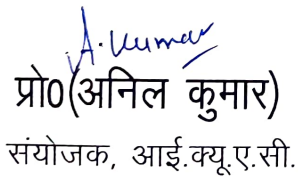 A. Kumar
प्रो0(अनिल कुमार)
संयोजक, आई.क्यू.ए.सी.